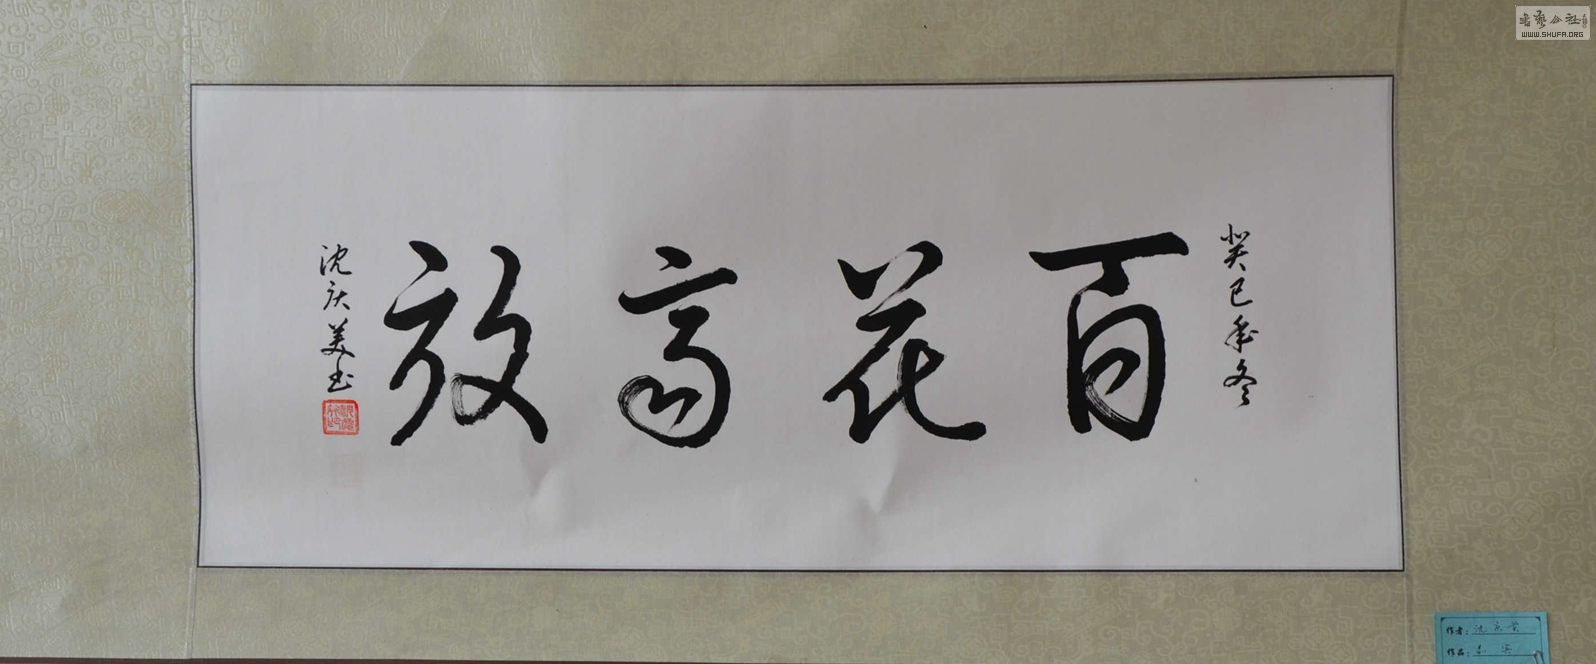 癸巳年冬
百花齐放
沈庆美书
书艺公社
WWW.SHUFA.ORG
作者：沈庆美
作品：